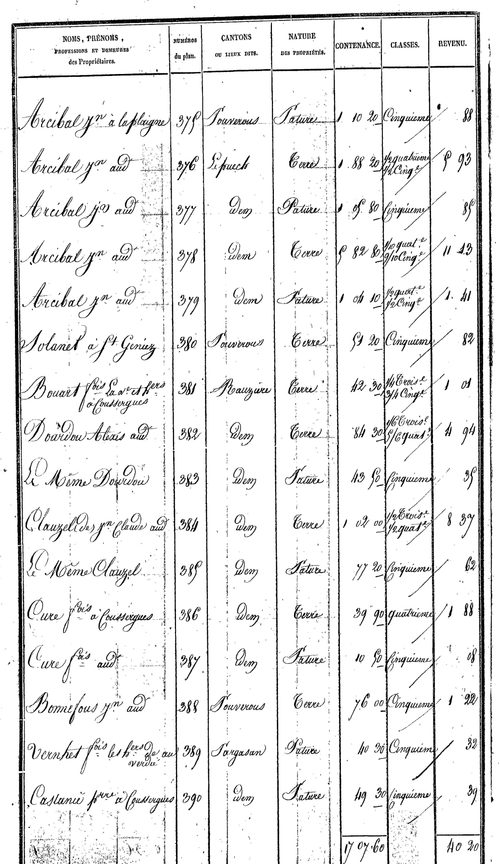 NOMS, PRÉNOMS, PROFESSIONS ET DEMEURES des Propriétaires. NUMÉROS du plan. CANTONS OU LIEUX DITS. NATURE DES PROPRIÉTÉS. CONTENANCE. CLASSES. REVENU.
Arcibal jne à laplaigne 375 Pouverous Pature 1 10 20 Cinquieme 88
Arcibal jne aud 376 Lepuech Terre 1 88 20 1/2 quatrieme 1/2 Cinqe 5 93
Arcibal jne aud 377 idem Pature 1 05 80 Cinquieme 85
Arcibal jne aud 378 idem Terre 5 82 80 1/10 quate 9/10 Cinqe 11 23
Arcibal jne aud 379 idem Pature 1 04 10 1/2 quate 1/2 Cinqe 1 41
Solanet à St Geniez 380 Pouverous Terre 51 20 Cinquieme 82
Bouart fois La ve et hers à Coussergues 381 Mauziere Terre 42 30 1/4 Troise 3/4 Cinqe 1 01
Dourdou Alexis aud 382 idem Terre 84 30 1/6 Troise 5/6 quate 4 94
Le Même Dourdou 383 idem Pature 43 50 Cinquieme 35
Clauzel (de) jne Claude aud 384 idem Terre 1 02 00 1/2 Troise 1/2 quate 8 37
Le Même Clauzel 385 idem Pature 77 20 Cinquieme 62
Cure fois à Coussergues 386 idem Terre 39 90 quatrieme 1 88
Cure fois aud 387 idem Pature 10 50 Cinquieme 08
Bonnefous jne aud 388 Pouverous Terre 76 00 Cinquieme 1 22
Vernhet fois les hers de au verdié 389 Pargasan Pature 40 30 Cinquiem 32
Castanié prre à Coussergues 390 idem Pature 49 30 Cinquieme 39
17 07 60 40 30